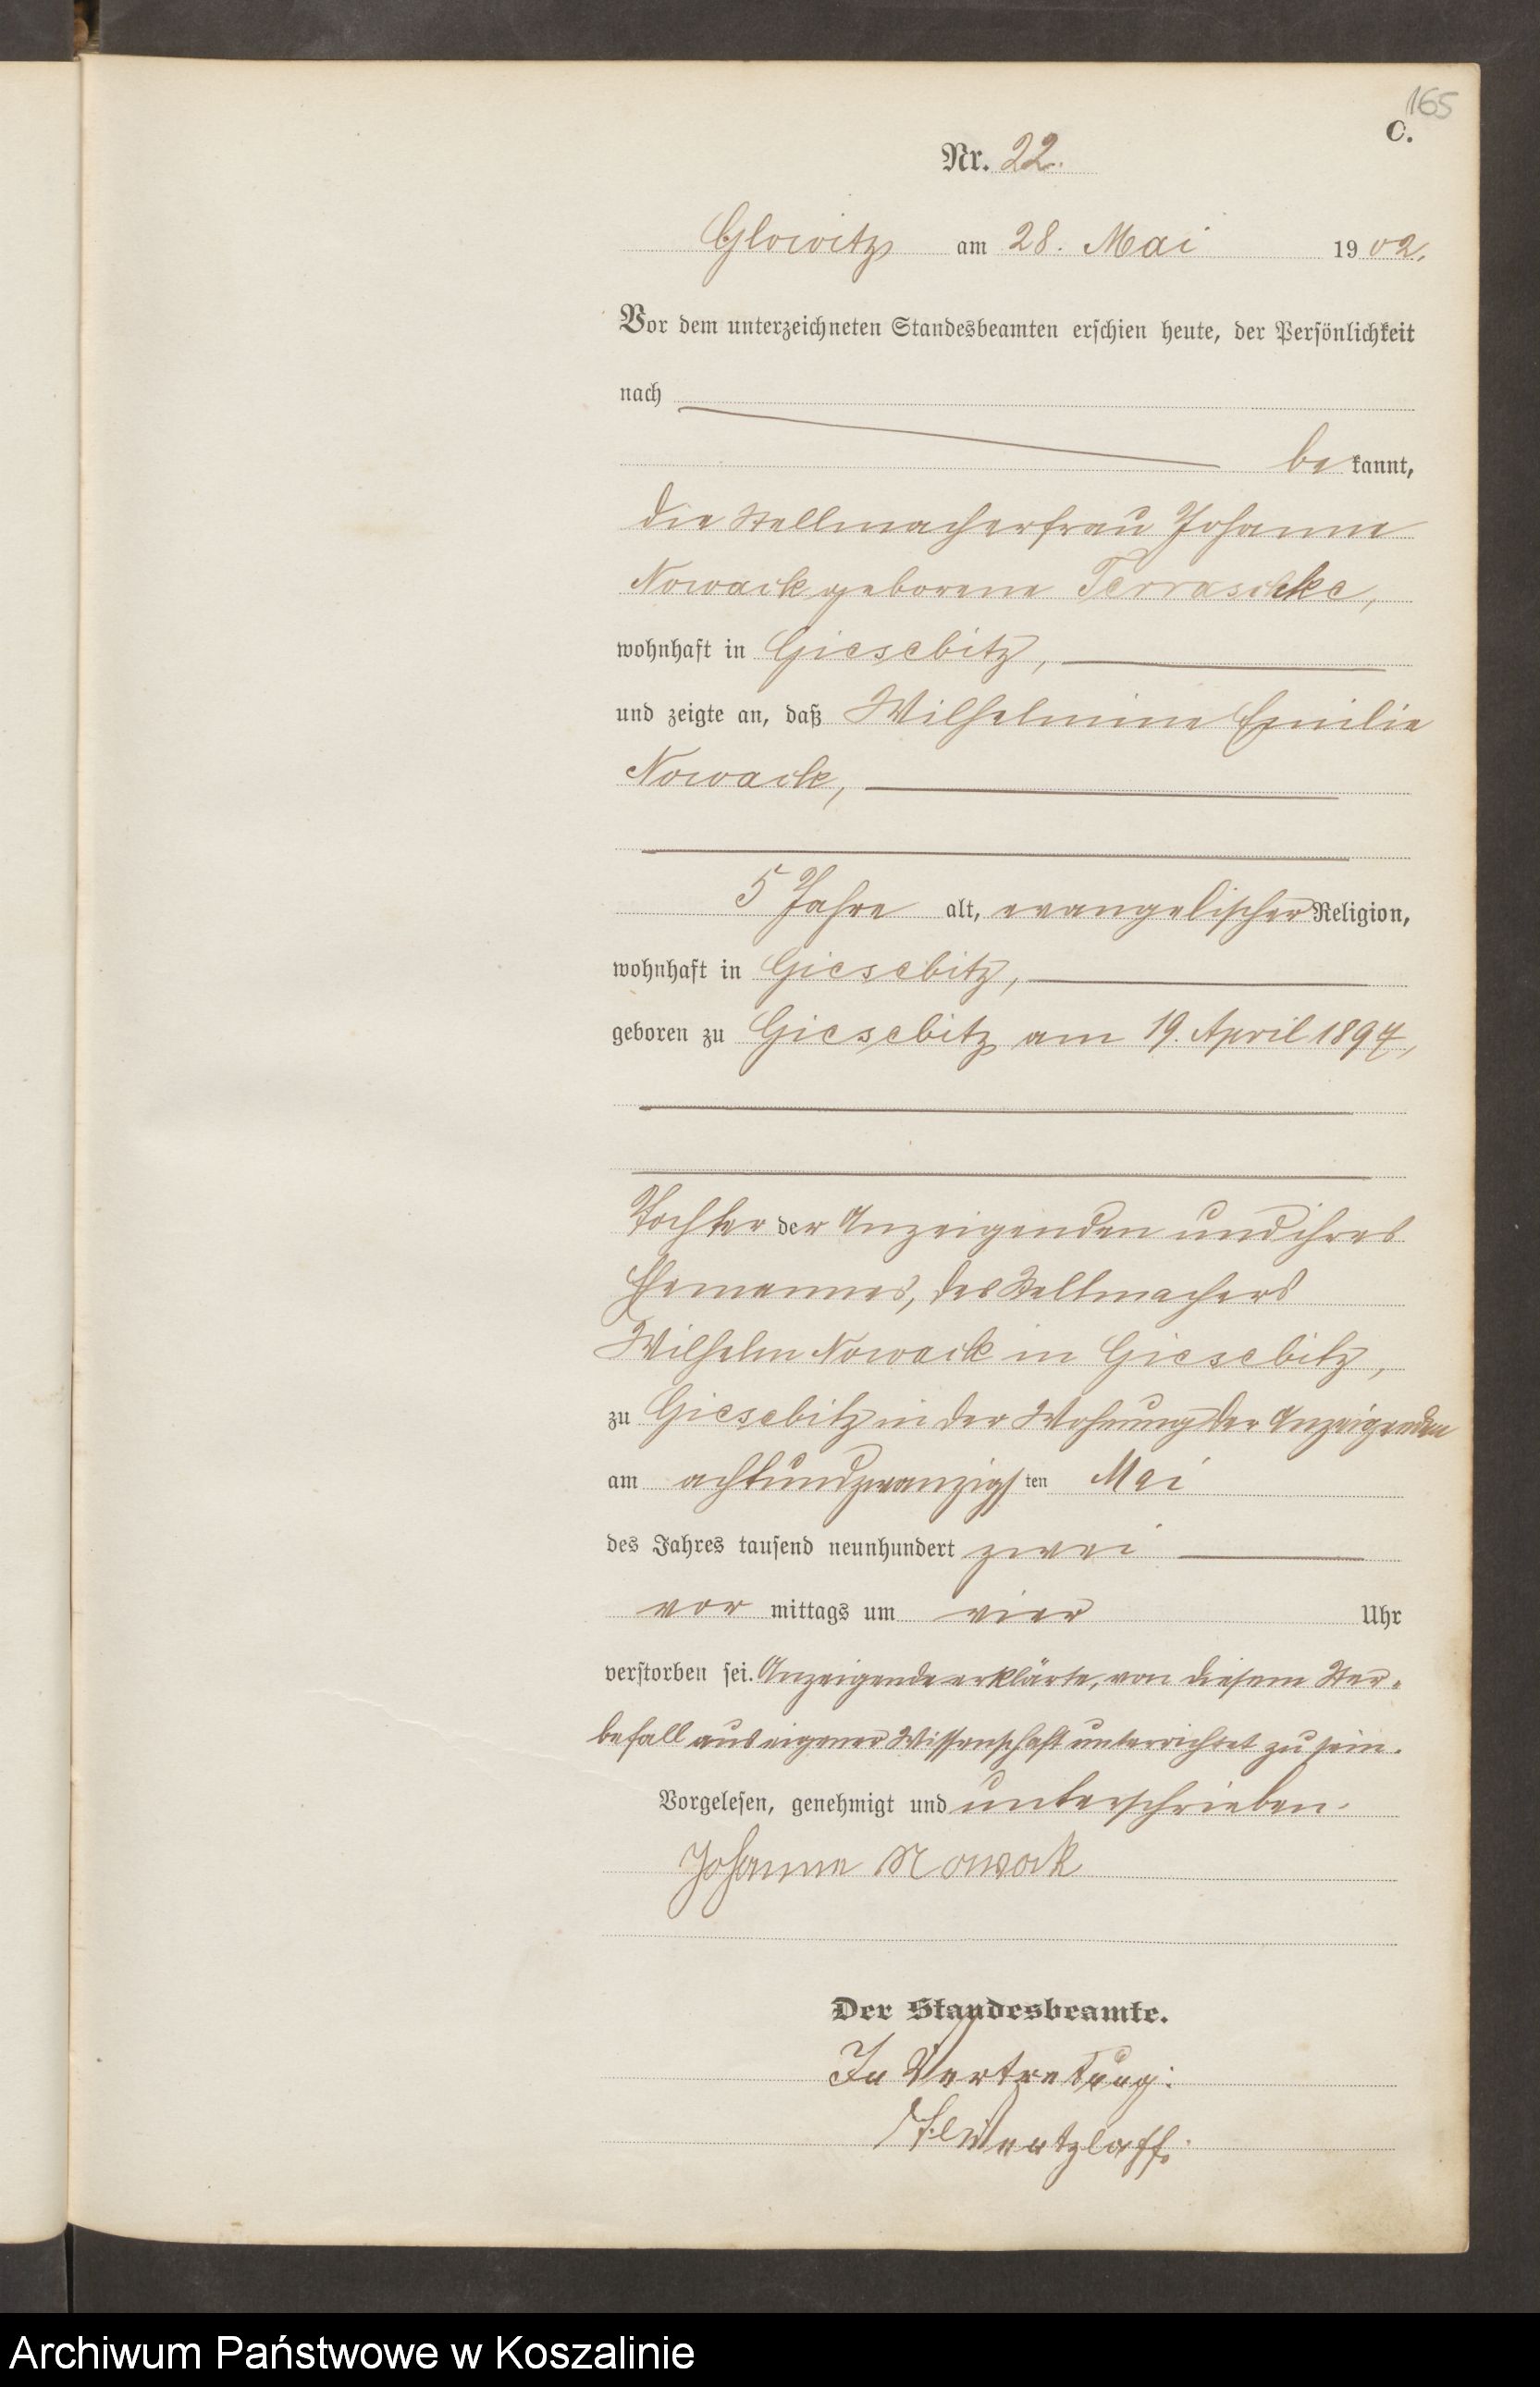 165
C.
Nr. 22.
Glowitz am 28. Mai 1902.
Vor dem unterzeichneten Standesbeamten erschien heute, der Persönlichkeit
nach
bekannt,
die Stellmacherfrau Johanne
Nowack geborene Terraschke,
wohnhaft in Giesebitz,
und zeigte an, daß Wilhelmine Emilie
Nowack,
5 Jahre alt, evangelischer Religion,
wohnhaft in Giesebitz,
geboren zu Giesebitz am 19. April 1897,
Tochter der Anzeigenden und ihres
Ehemannes, des Stellmachers
Wilhelm Nowack in Giesebitz,
zu Giesebitz in der Wohnung der Anzeigenden
am achtundzwanzigsten Mai
des Jahres tausend neunhundert zwei
vor mittags um vier Uhr
verstorben sei. Anzeigende erklärte, von diesem Ster-
befall aus eigener Wissenschaft unterrichtet zu sein.
Vorgelesen, genehmigt und unterschrieben.
Johanne Nowack
Der Standesbeamte.
In Vertretung:
Archiwum Państwowe w Koszalinie